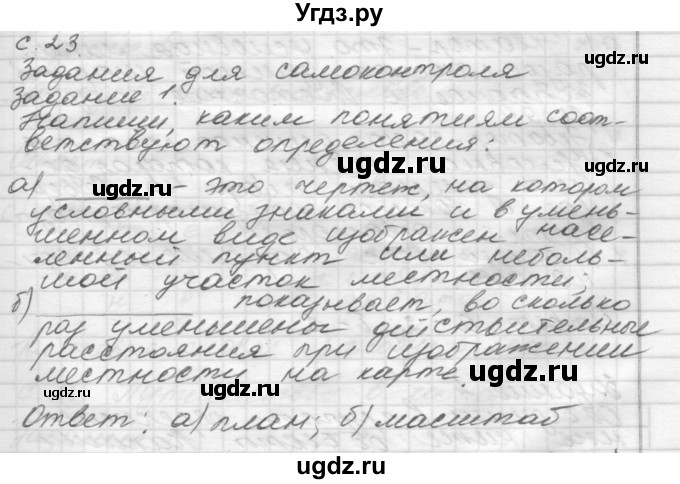 Угдз.ру
с. 23.
Задания для самоконтроля
Задание 1.
Напиши, каким понятиям соот-
ветствуют определения:
ugdz.ru
ugdz.ru
а) ________ - это чертеж, на котором
ugdz.ru
условными знаками и в умень-
шенном виде изображен насе-
ленный пункт или неболь-
шой участок местности;
б) ____________ показывает, во сколько
раз уменьшены действительные
расстояния при изображении
местности на карте.
ugdz.ru
ugdz.ru
ugdz.ru
Ответ: а) план; б) масштаб
ugdz.ru